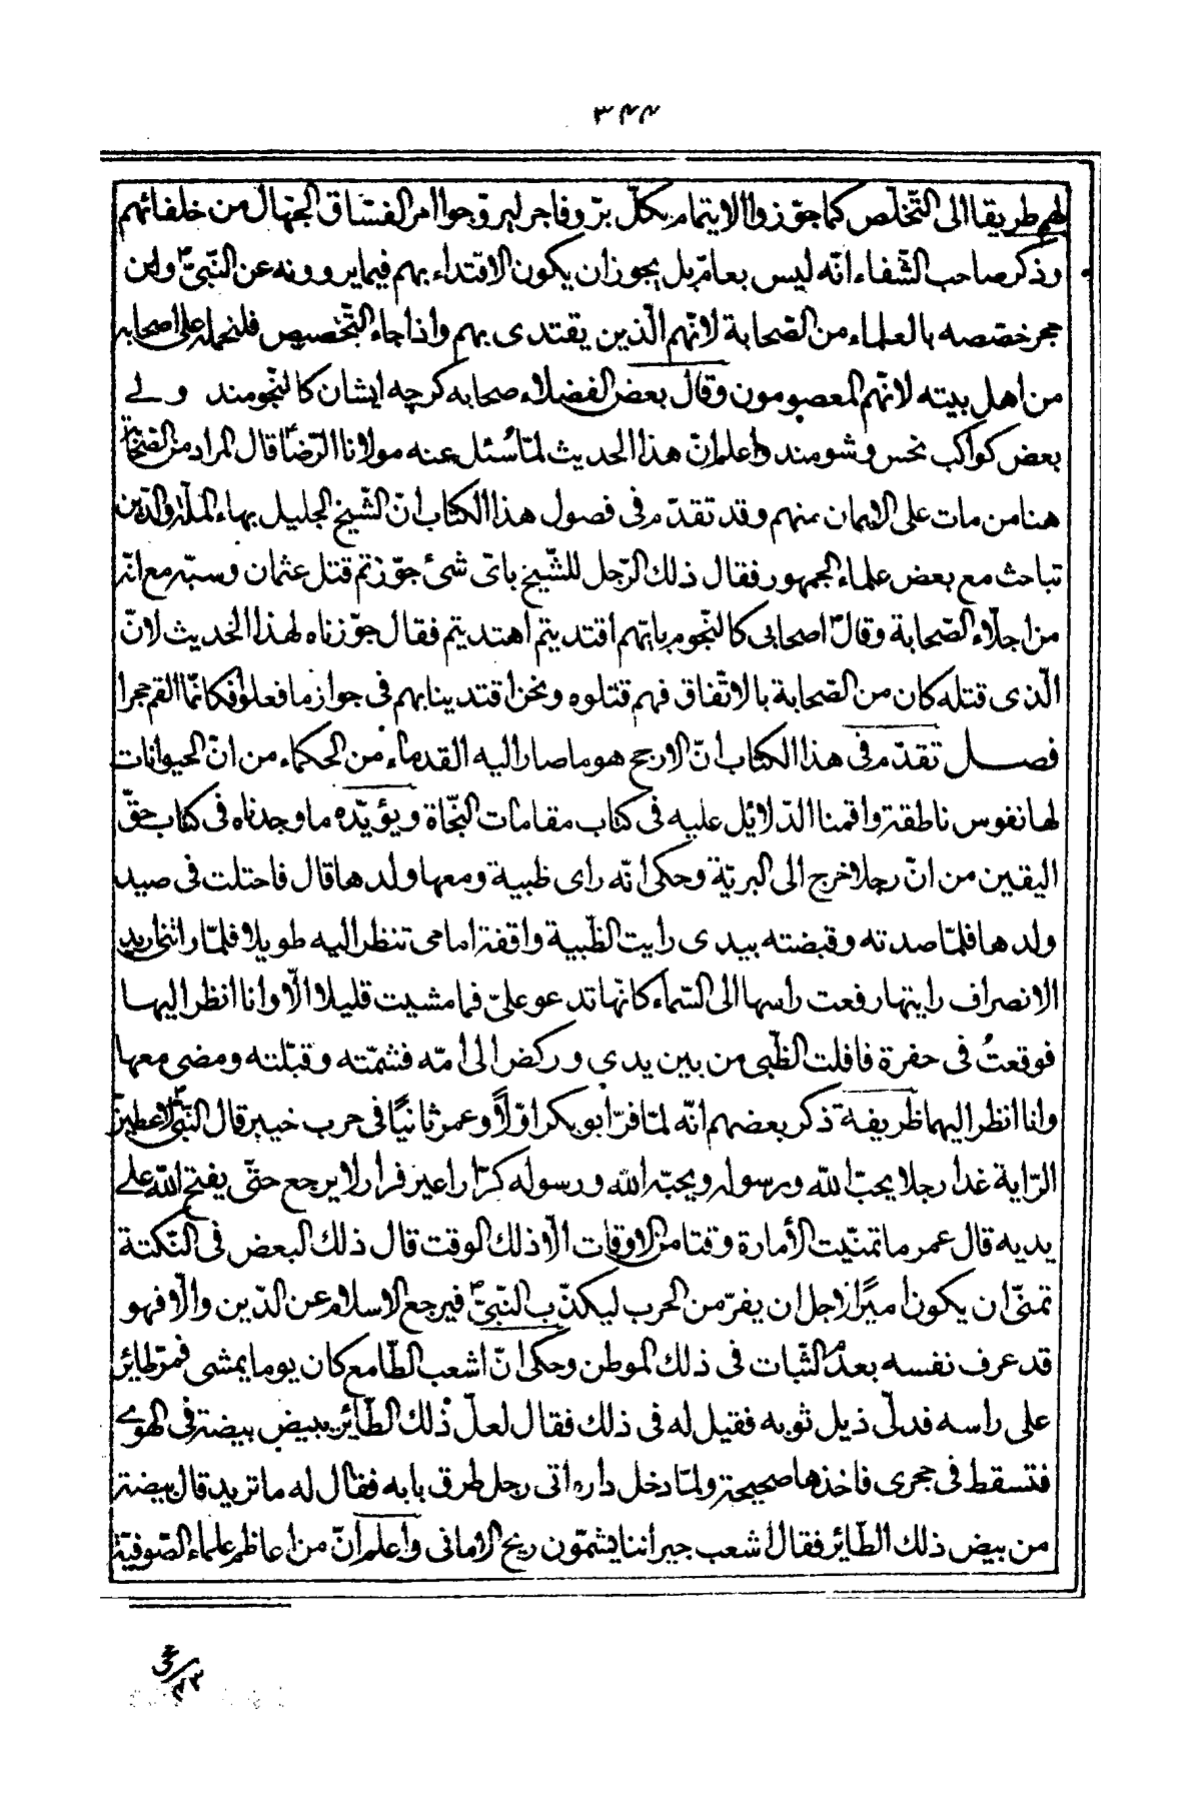 ٣٤٤
لهم طريقا الى التّخلّص كما جوّزوا الايتمام بكلّ برّ وفاجر ليروّجوا امر الفسّاق الجهال من خلفائهم
وذكر صاحب الشّفاء انّه ليس بعامّ بل يجوز ان يكون الاقتداء بهم فيما يروونه عن النّبىّ ص وابن
حجر خصّصه بالعلماء من الصّحابة لانّهم الّذين يقتدى بهم واذا جاء التّخصيص فلنحمله على اصحابه
من اهل بيته لانّهم المعصومون وقال بعض الفضلاء صحابه كرچه ايشان كالنّجومند ولے
بعض كواكب نحس وشومند واعلم انّ هذا الحديث لمّا سُئل عنه مولانا الرّضا ع قال المراد من الصّحابة
هنا من مات على الايمان منهم وقد تقدّم فى فصول هذا الكتاب انّ الشّيخ الجليل بهاء الملّة والدّين
تباحث مع بعض علماء الجمهور فقال ذلك الرّجل للشّيخ باىّ شئ جوّزتم قتل عثمان وسبّه مع انّه
من اجلّاء الصّحابة وقال ص اصحابى كالنّجوم بايّهم اقتديتم اهتديتم فقال جوّزناه لهذا الحديث لانّ
الّذى قتله كان من الصّحابة بالاتّفاق فهم قتلوه ونحن اقتدينا بهم فى جواز ما فعلوا فكانّما القم حجرا
فصل تقدّم فى هذا الكتاب انّ الارجح هو ما صار اليه القدماء من الحكماء من انّ الحيوانات
لها نفوس ناطقة واقمنا الدّلائل عليه فى كتاب مقامات النّجاة ويؤيّده ما وجدناه فى كتاب حقّ
اليقين من انّ رجلا خرج الى البريّة وحكى انّه راى ظبية ومعها ولدها قال فاحتلت فى صيد
ولدها فلمّا صدته وقبضته بيدى رايت الظّبية واقفة امامى تنظر اليه طويلا فلمّا راتنى اريد
الانصراف رايتها رفعت راسها الى السّماء كانّها تدعو علىّ فما مشيت قليلا الّا وانا انظر اليها
فوقعتُ فى حفرة فافلت الظّبى من بين يدى وركض الى امّه فشمّته وقبّلته ومضى معها
وانا انظر اليهما ظريفة ذكر بعضهم انّه لمّا فرّ ابو بكر اوّلاً وعمر ثانيًا فى حرب خيبر قال النّبىّ ص لاعطينّ
الرّاية غدا رجلا يحبّ اللّه ورسوله ويحبّه اللّه ورسوله كرّارا غير فرار لا يرجع حتّى يفتح اللّه على
يديه قال عمر ما تمنّيت الأمارة وقتا من الاوقات الّا ذلك الوقت قال ذلك البعض فى النّكتة
تمنّى ان يكون اميرًا لاجل ان يفرّ من الحرب ليكذّب النّبىّ ص فيرجع الاسلام عن الدّين والّا فهو
قد عرف نفسه بعدم الثّبات فى ذلك الموطن وحكى انّ اشعب الطّامع كان يوما يمشى فمرّ طائر
على راسه فدلّى ذيل ثوبه فقيل له فى ذلك فقال لعلّ ذلك الطّائر يبيض بيضة فى الهوى
فتسقط فى حجرى فاخذها صحيحة ولمّا دخل داره اتى رجل طرق بابه فقال له ما تريد قال بيضة
من بيض ذلك الطّائر فقال اشعب جيراننا يشمّون ريح الامانى واعلم انّ من اعاظم علماء الصّوفيّة